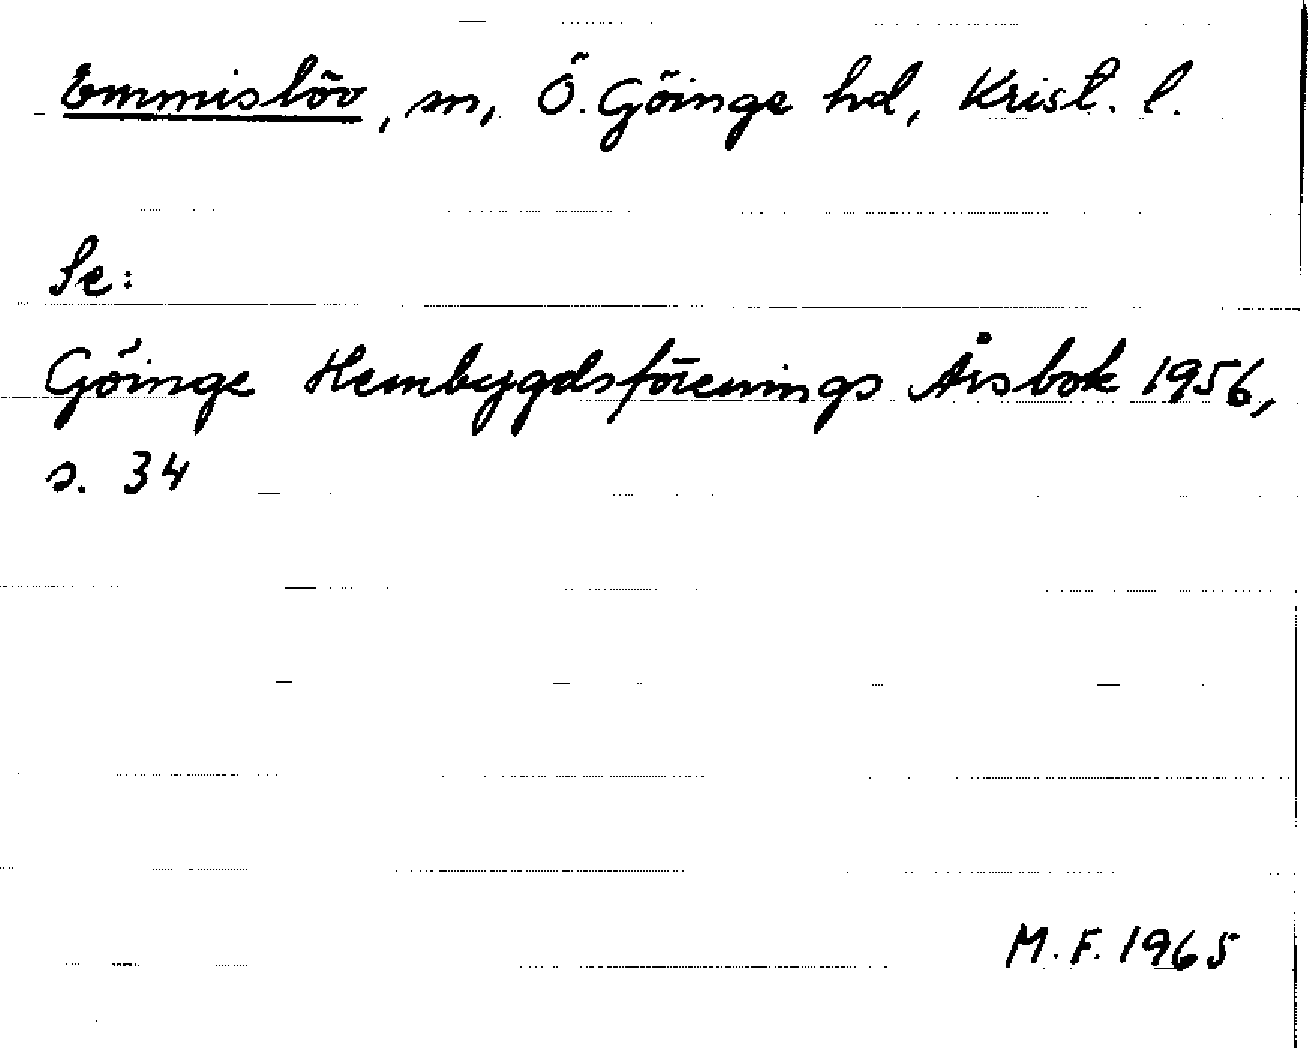 Emmislöv, sn, Ö. Göinge hd, Krist. l.
Se:
Göinge Hembygdsförenings Årsbok 1956,
s. 34
M.F. 1965